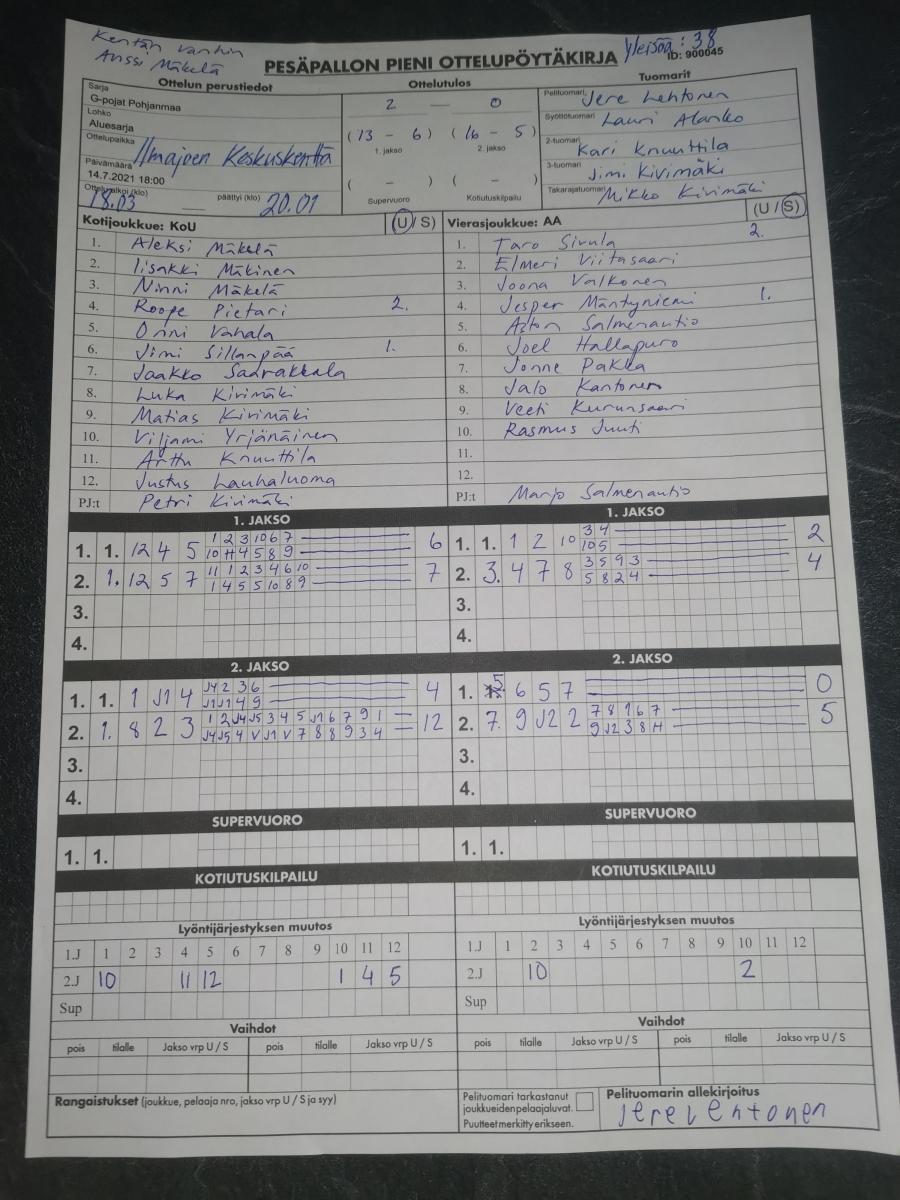 Kentän vanhin
Anssi Mäkelä
Yleisöä: 38
PESÄPALLON PIENI OTTELUPÖYTÄKIRJA
ID: 900045
Ottelun perustiedot
Sarja
G-pojat Pohjanmaa
Lohko
Aluesarja
Ottelupaikka
Ilmajoen Keskuskenttä
Päivämäärä
14.7.2021 18:00
Ottelu alkoi (klo) 18.03 päättyi (klo) 20.01
Ottelutulos
2 — 0
(13 - 6) (16 - 5)
1. jakso 2. jakso
( - ) ( - )
Supervuoro Kotiutuskilpailu
Tuomarit
Pelituomari Jere Lehtonen
Syöttötuomari Lauri Alanko
2-tuomari Kari Knuuttila
3-tuomari Jimi Kivimäki
Takarajatuomari Mikko Kivimäki
Kotijoukkue: KoU (U/S)
1. Aleksi Mäkelä
2. Iisakki Mäkinen
3. Ninni Mäkelä
4. Roope Pietari 2.
5. Onni Vahala
6. Jimi Sillanpää 1.
7. Jaakko Saarakkala
8. Luka Kivimäki
9. Matias Kivimäki
10. Viljami Yrjänäinen
11. Arttu Knuuttila
12. Justus Lauhaluoma
PJ:t Petri Kivimäki
Vierasjoukkue: AA (U/S)
1. Taro Sivula 2.
2. Elmeri Viitasaari
3. Joona Valkonen
4. Jesper Mäntyniemi 1.
5. Aston Salmenautio
6. Joel Hallapuro
7. Jonne Pakka
8. Jalo Kantonen
9. Veeti Kurunsaari
10. Rasmus Juuti
11.
12.
PJ:t Marjo Salmenautio
1. JAKSO
1. 1. 12 4 5 1 2 3 10 6 7 6
10 H 4 5 8 9
2. 1. 12 5 7 11 1 2 3 4 6 10 7
1 4 5 5 10 8 9
3.
4.
1. JAKSO
1. 1. 1 2 10 3 4 2
10 5
2. 3. 4 7 8 3 5 9 3 4
5 8 2 4
3.
4.
2. JAKSO
1. 1. 1 J1 4 J4 2 3 6 4
J1 J1 4 9
2. 1. 8 2 3 1 2 J4 J5 3 4 5 J1 6 7 9 1 12
J4 J5 4 V J1 V 7 8 8 9 3 4
3.
4.
2. JAKSO
1. 5. 6 5 7 0
2. 7. 9 J2 2 7 8 1 6 7 5
9 J2 3 8 H
3.
4.
SUPERVUORO
1. 1.
SUPERVUORO
1. 1.
KOTIUTUSKILPAILU
KOTIUTUSKILPAILU
Lyöntijärjestyksen muutos
1.J 1 2 3 4 5 6 7 8 9 10 11 12
2.J 10 11 12 1 4 5
Sup
Lyöntijärjestyksen muutos
1.J 1 2 3 4 5 6 7 8 9 10 11 12
2.J 10 2
Sup
Vaihdot
pois tilalle Jakso vrp U / S pois tilalle Jakso vrp U / S
Vaihdot
pois tilalle Jakso vrp U / S pois tilalle Jakso vrp U / S
Rangaistukset (joukkue, pelaaja nro, jakso vrp U / S ja syy)
Pelituomari tarkastanut
joukkueiden pelaajaluvat.
Puutteet merkitty erikseen.
Pelituomarin allekirjoitus
Jere Lehtonen